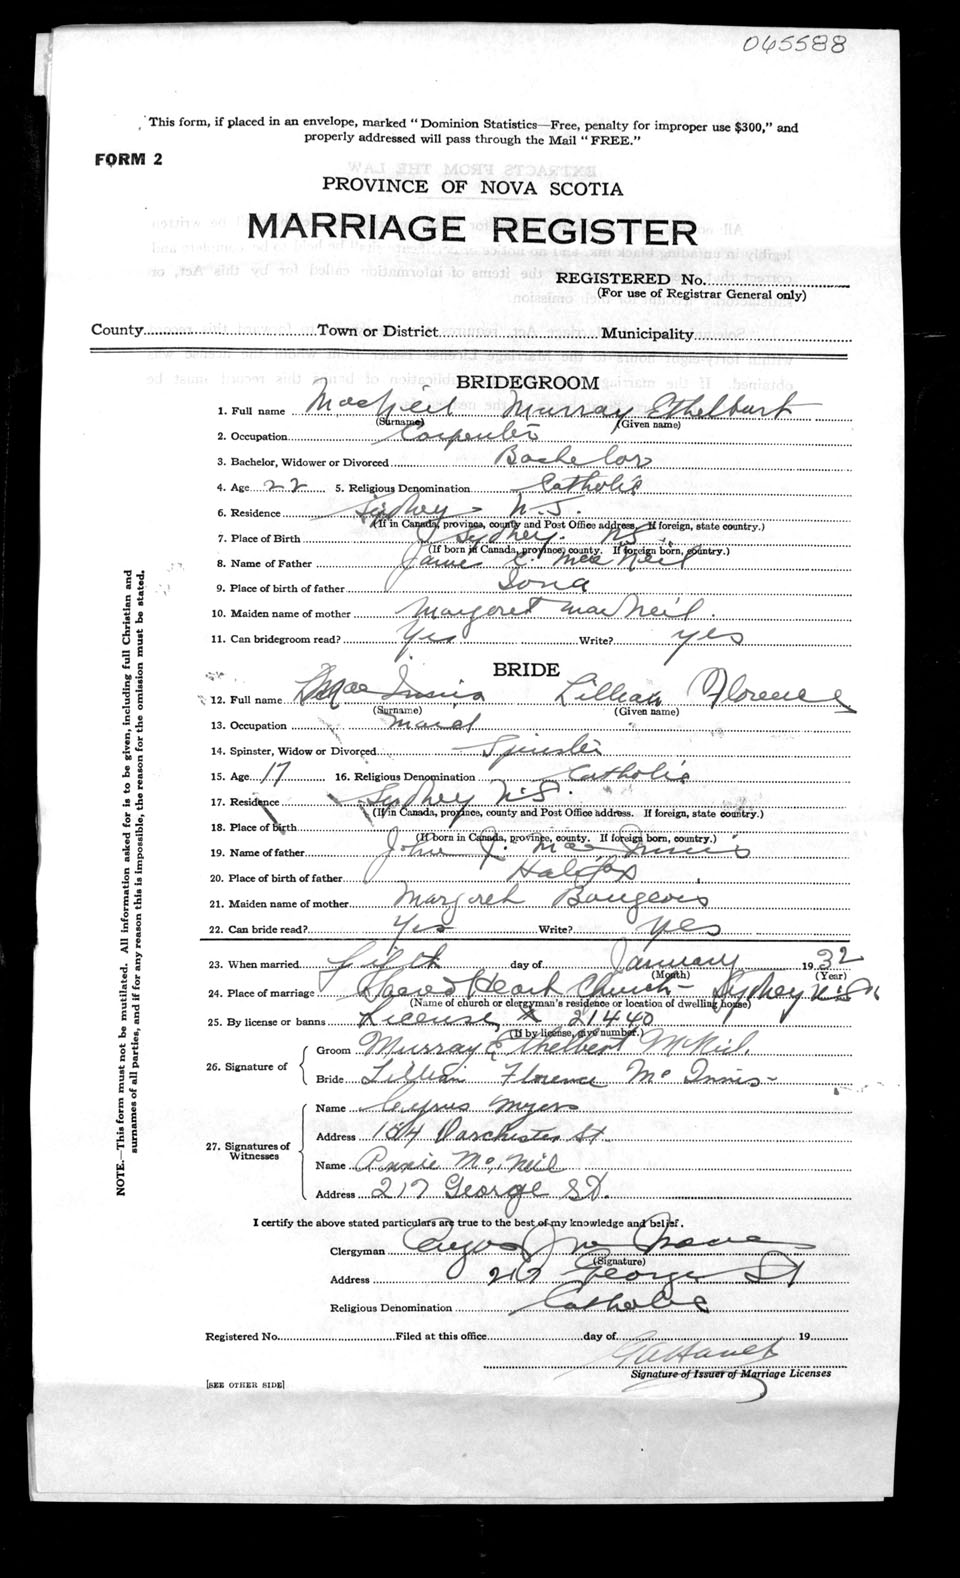 065588
This form, if placed in an envelope, marked "Dominion Statistics—Free, penalty for improper use $300," and
properly addressed will pass through the Mail "FREE."
FORM 2
PROVINCE OF NOVA SCOTIA
MARRIAGE REGISTER
REGISTERED No.
(For use of Registrar General only)
County Town or District Municipality
BRIDEGROOM
1. Full name MacNeil Murray Ethelbert
(Surname) (Given name)
2. Occupation Carpenter
3. Bachelor, Widower or Divorced Bachelor
4. Age 22 5. Religious Denomination Catholic
6. Residence Sydney N.S.
(If in Canada, province, county and Post Office address. If foreign, state country.)
7. Place of Birth Sydney. NS.
(If born in Canada, province, county. If foreign born, country.)
8. Name of Father James C. MacNeil
9. Place of birth of father Iona
10. Maiden name of mother Margaret MacNeil.
11. Can bridegroom read? Yes Write? yes
BRIDE
12. Full name MacInnis Lillian Florence
(Surname) (Given name)
13. Occupation maid
14. Spinster, Widow or Divorced Spinster
15. Age 17 16. Religious Denomination Catholic
17. Residence Sydney N.S.
(If in Canada, province, county and Post Office address. If foreign, state country.)
18. Place of birth
(If born in Canada, province, county. If foreign born, country.)
19. Name of father John J. MacInnis
20. Place of birth of father Halifax
21. Maiden name of mother Margaret Bourgeois
22. Can bride read? Yes Write? yes
23. When married Fifth day of January 1932
(Month) (Year)
24. Place of marriage Sacred Heart Church - Sydney N.S.
(Name of church or clergyman's residence or location of dwelling house)
25. By license or banns License 21440
(If by license, give number.)
26. Signature of
Groom Murray Ethelbert McNeil.
Bride Lillian Florence McInnis
27. Signatures of Witnesses
Name Cyrus Myers
Address 154 Dorchester St.
Name Annie McNeil
Address 217 George St.
I certify the above stated particulars are true to the best of my knowledge and belief.
Clergyman
(Signature)
Address George St
Religious Denomination Catholic
Registered No. Filed at this office day of 19
Signature of Issuer of Marriage Licenses
[SEE OTHER SIDE]
NOTE.—This form must not be mutilated. All information asked for is to be given, including full Christian and
surnames of all parties, and if for any reason this is impossible, the reason for the omission must be stated.